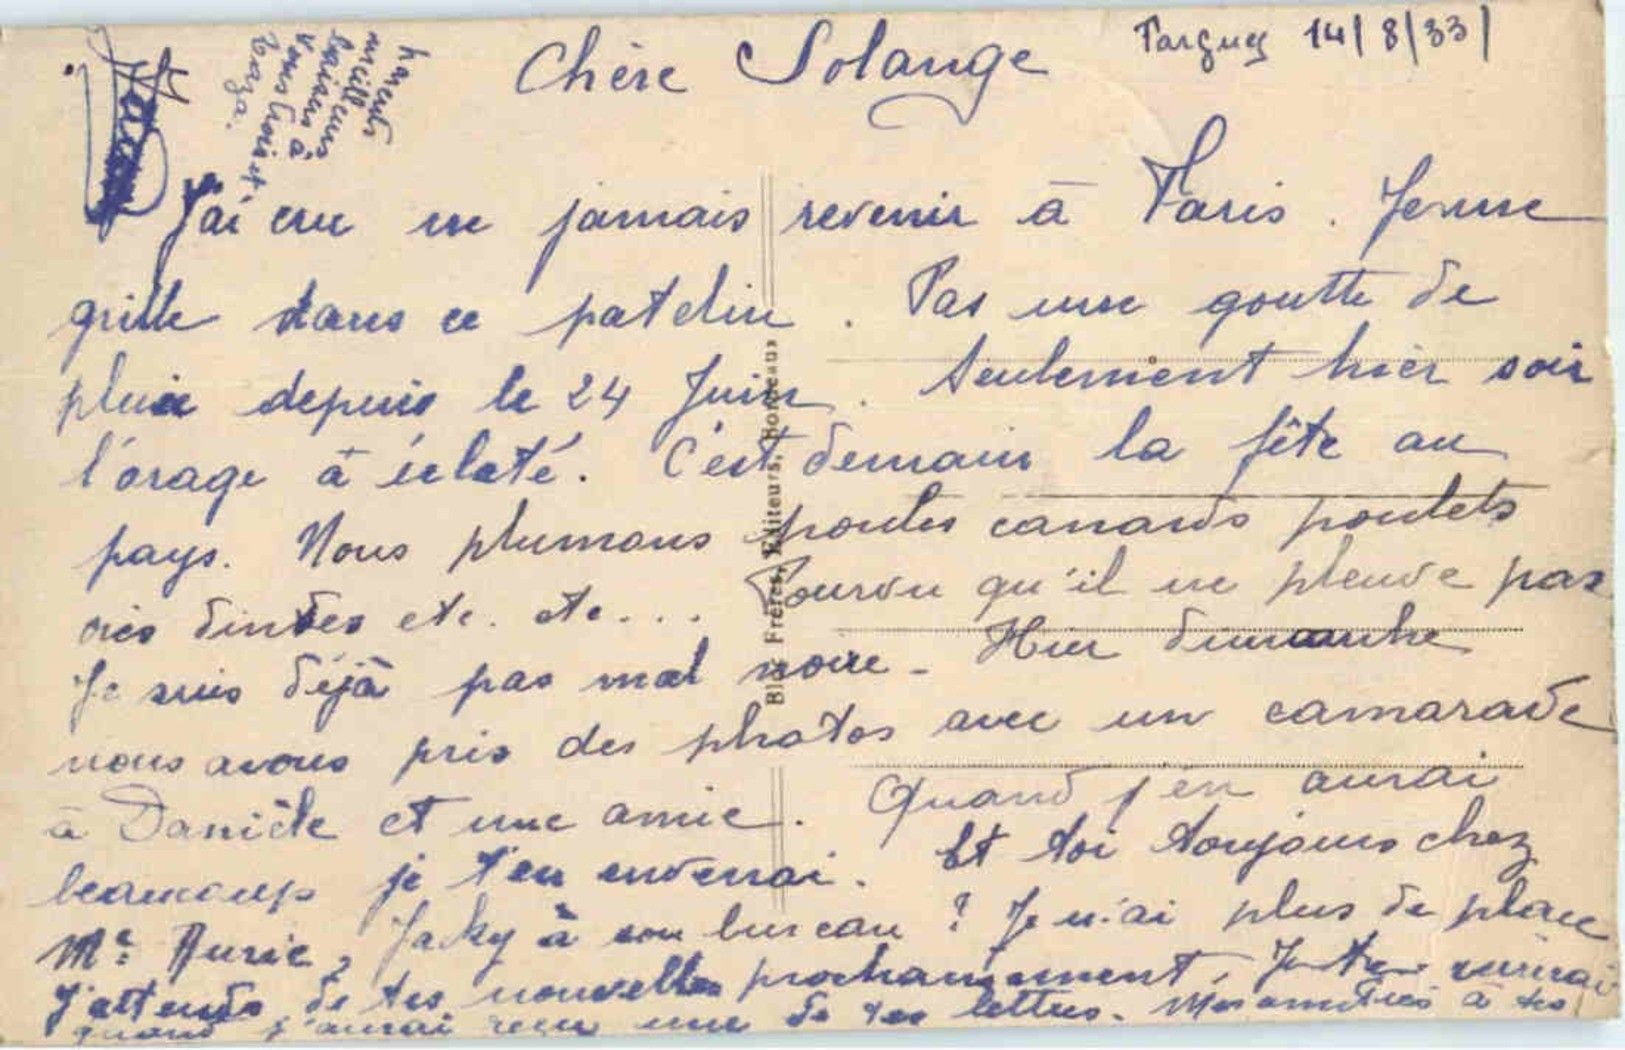 14/8/33
Chère Solange
J'ai cru ne jamais revenir à Paris. Je me
grille dans ce patelin. Pas une goutte de
pluie depuis le 24 Juin. Seulement hier soir
l'orage à éclaté. C'est demain la fête au
pays. Nous plumons poules canards poulets
oies dindes etc. etc...  Pourvu qu'il ne pleuve pas
Je suis déjà pas mal noire - Hier dimanche
nous avons pris des photos avec un camarade
à Danièle et une amie. Quand j'en aurai
beaucoup je t'en enverrai. Et toi toujours chez
Mr Aurie, Jacky à son bureau ? Je n'ai plus de place
J'attends de tes nouvelles prochainement, Je t'écrirai
quand j'aurai reçu une de tes lettres. Mes amitiés à tes
parents
meilleurs
baisers à
vous trois et
Zouzou.
Blok Frères, Editeurs, Bordeaux